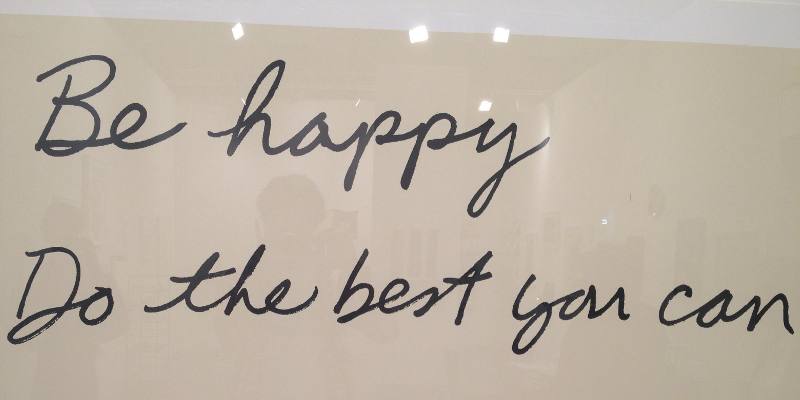 Be happy
Do the best you can